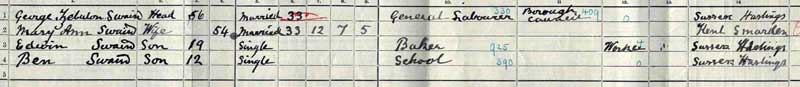 1 George Zebulon Swain Head 56 Married 33 General Labourer 330 Borough Council 409 0 Sussex Hastings
2 Mary Ann Swain Wife 54 Married 33 12 7 5 Kent Smarden
3 Edwin Swain Son 19 Single Baker 925 Worker Sussex Hastings
4 Ben Swain Son 12 Single School 390 0 Sussex Hastings
5